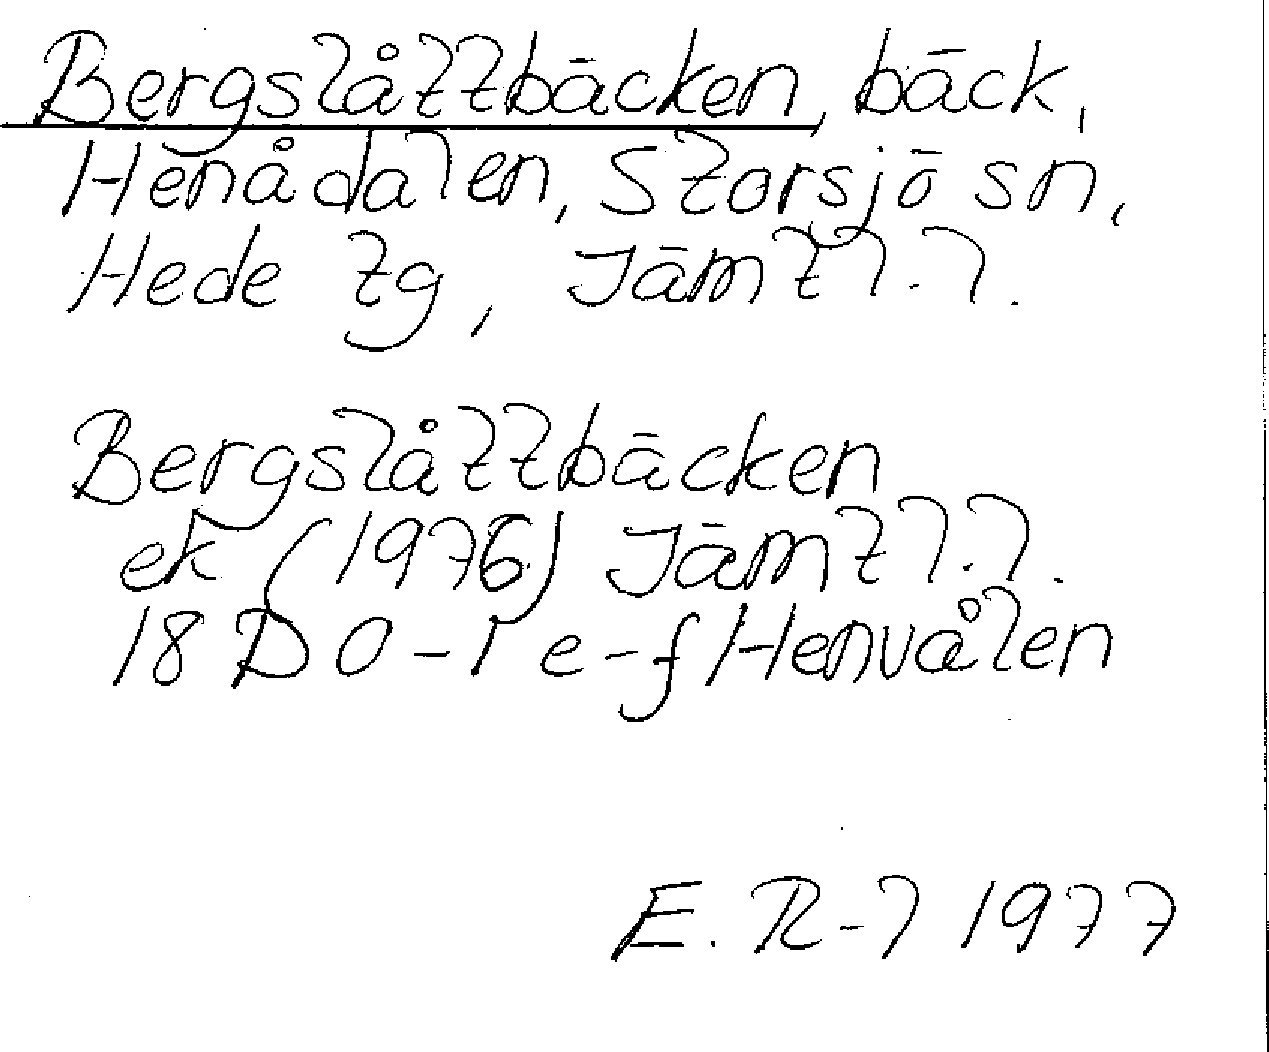 Bergslåttbäcken, bäck,
Henådalen, Storsjö sn,
Hede tg, Jämtl.l.
Bergslåttbäcken
ek (1976) Jämtl.l.
18D 0-1 e-f Henvålen
E. R-l 1977